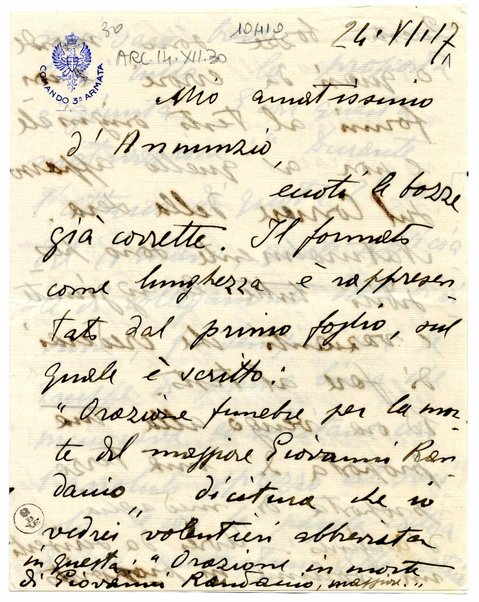 30
10410
24.VI.17
ARC.14.XII.30
COMANDO 3ª ARMATA
Mio amatissimo
d'Annunzio,
eccoti le bozze
già corrette. Il formato
come lunghezza è rappresen
tato dal primo foglio, sul
quale è scritto:
"Orazione funebre per la mor-
te del maggiore Giovanni Ran
daccio„ dicitura che io
vedrei volentieri abbreviata
in questa: "Orazione in morte
di Giovanni Randaccio, maggiore."